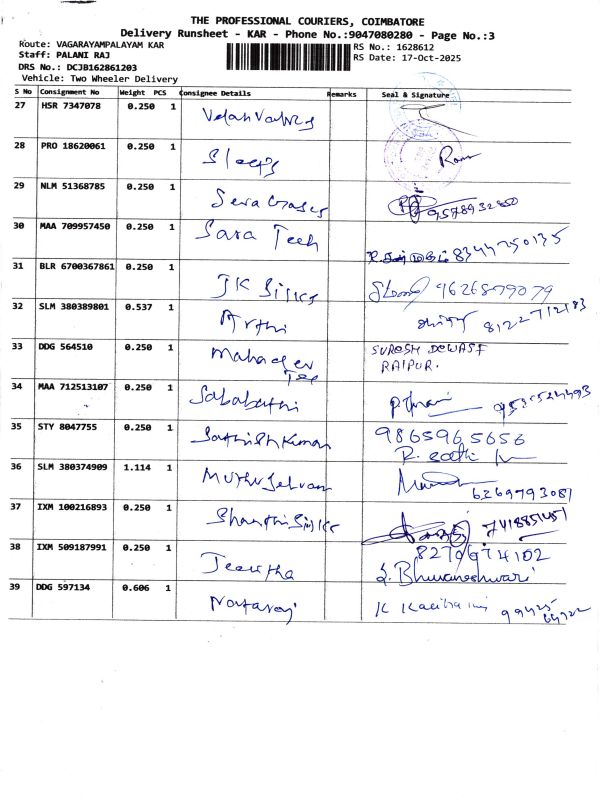 THE PROFESSIONAL COURIERS, COIMBATORE
Delivery Runsheet - KAR - Phone No.:9047080280 - Page No.:3
Route: VAGARAYAMPALAYAM KAR
RS No.: 1628612
Staff: PALANI RAJ
RS Date: 17-Oct-2025
DRS No.: DCJB162861203
Vehicle: Two Wheeler Delivery
S No Consignment No Weight PCS Consignee Details Remarks Seal & Signature
27 HSR 7347078 0.250 1
28 PRO 18620061 0.250 1
29 NLM 51368785 0.250 1
30 MAA 709957450 0.250 1 Sara Tech 8344750135
31 BLR 6700367861 0.250 1 JK 9626879079
32 SLM 380389801 0.537 1 Arthi 8122712183
33 DDG 564510 0.250 1 Mahadev Tex SURESH DEWASI
RAIPUR.
34 MAA 712513107 0.250 1 Sababathi
35 STY 8047755 0.250 1 Sathish Kumar 9865965656
36 SLM 380374909 1.114 1 Muthu Selvam 6269793081
37 IXM 100216893 0.250 1 Shanthi 7418851451
38 IXM 509187991 0.250 1 Jeevitha 8270674102
S. Bhuvaneshwari
39 DDG 597134 0.606 1 Nataraj K